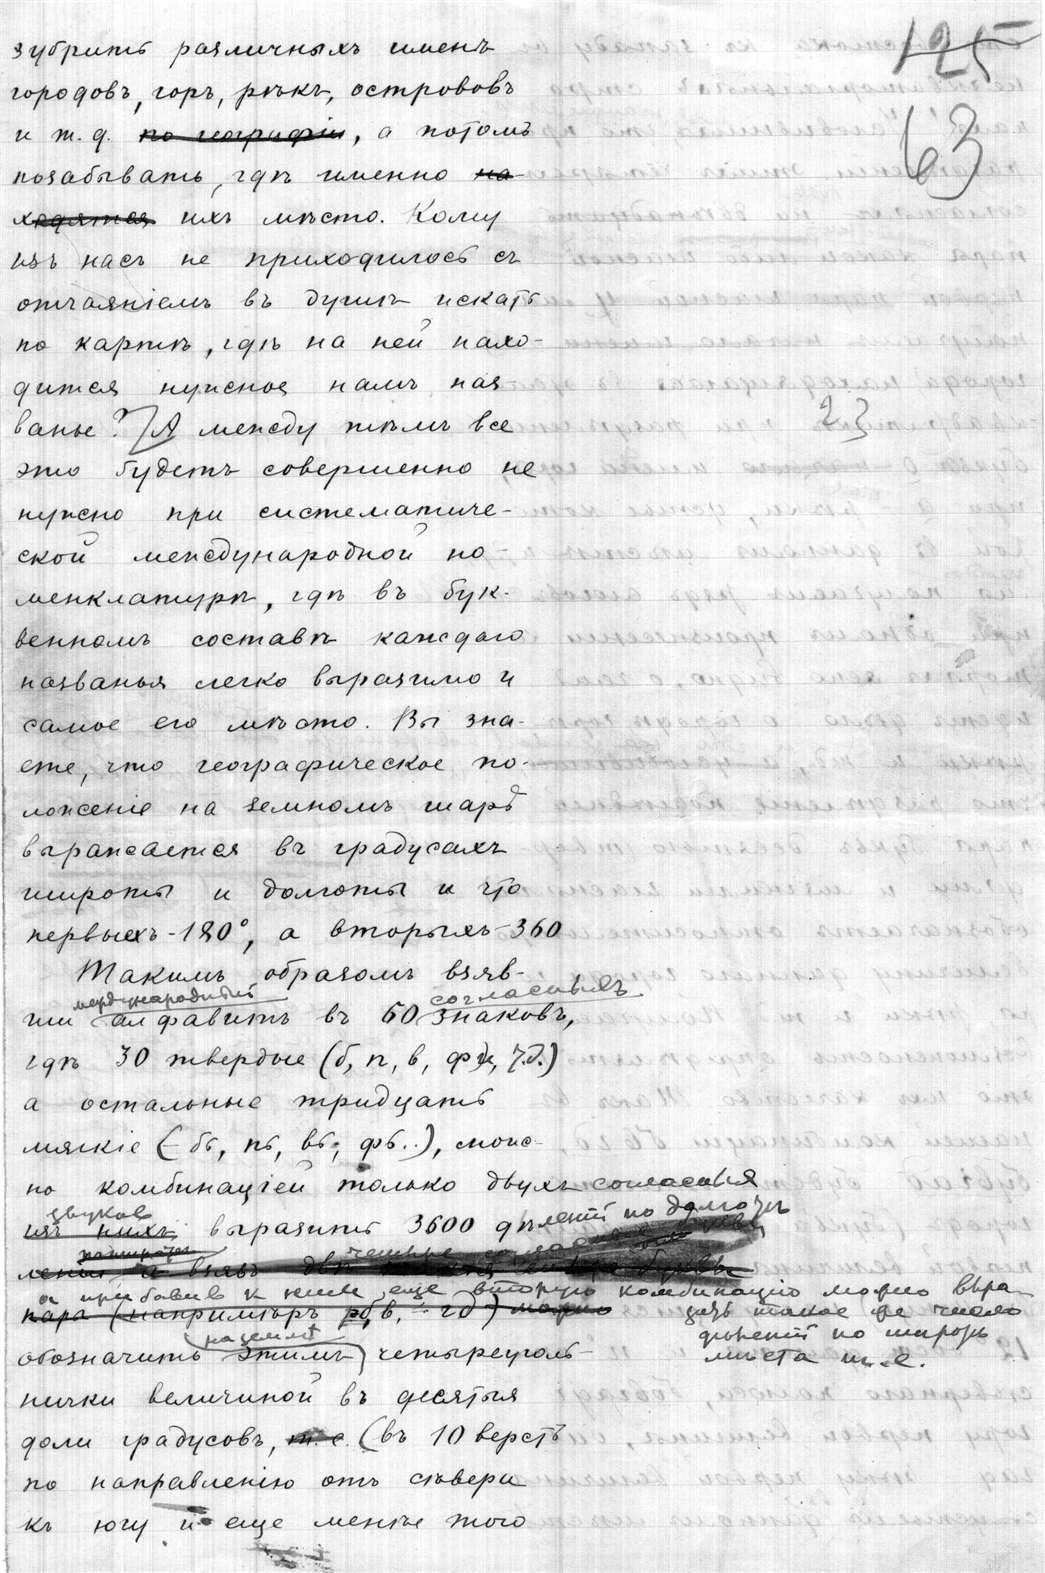 125
63
зубрить различныхъ именъ
городовъ, горъ, рѣкъ, острововъ
и т. д. по географіи, а потомъ
позабывать, гдѣ именно на-
ходятся ихъ мѣсто. Кому
изъ насъ не приходилось съ
отчаяніемъ въ душѣ искать
по картѣ, гдѣ на ней нахо-
дится нужное намъ наз-
ванье? А между тѣмъ все
23
это будетъ совершенно не
нужно при систематиче-
ской международной но-
менклатурѣ, гдѣ въ бук-
венномъ составѣ каждаго
названья легко выразимо и
самое его мѣсто. Вы зна-
ете, что географическое по-
ложеніе на земномъ шарѣ
выражается въ градусахъ
широты и долготы и что
первыхъ-180°, а вторыхъ-360
Такимъ образомъ взяв-
международный согласныхъ
ши алфавитъ въ 60 знаковъ,
гдѣ 30 твердые (б, п, в, ф, т.д.)
а остальные тридцать
мягкіе (-бь, пь, вь, фь..), мож-
но комбинаціей только двухъ согласныя
звуков
изъ нихъ выразить 3600 дѣленій по долготѣ
ленья а взявъ двѣ
а прибавив к ним еще вторую комбинацію можно выра-
пара (напримѣръ рб, в, гд) можно
зить такое же число
дѣленій по широтѣ
мѣста т.е.
на землѣ
обозначить этимъ четыреуголь-
нички величиной въ десятыя
доли градусовъ, т.е. (въ 10 верстъ
по направленію отъ сѣвера
къ югу и еще менѣе того